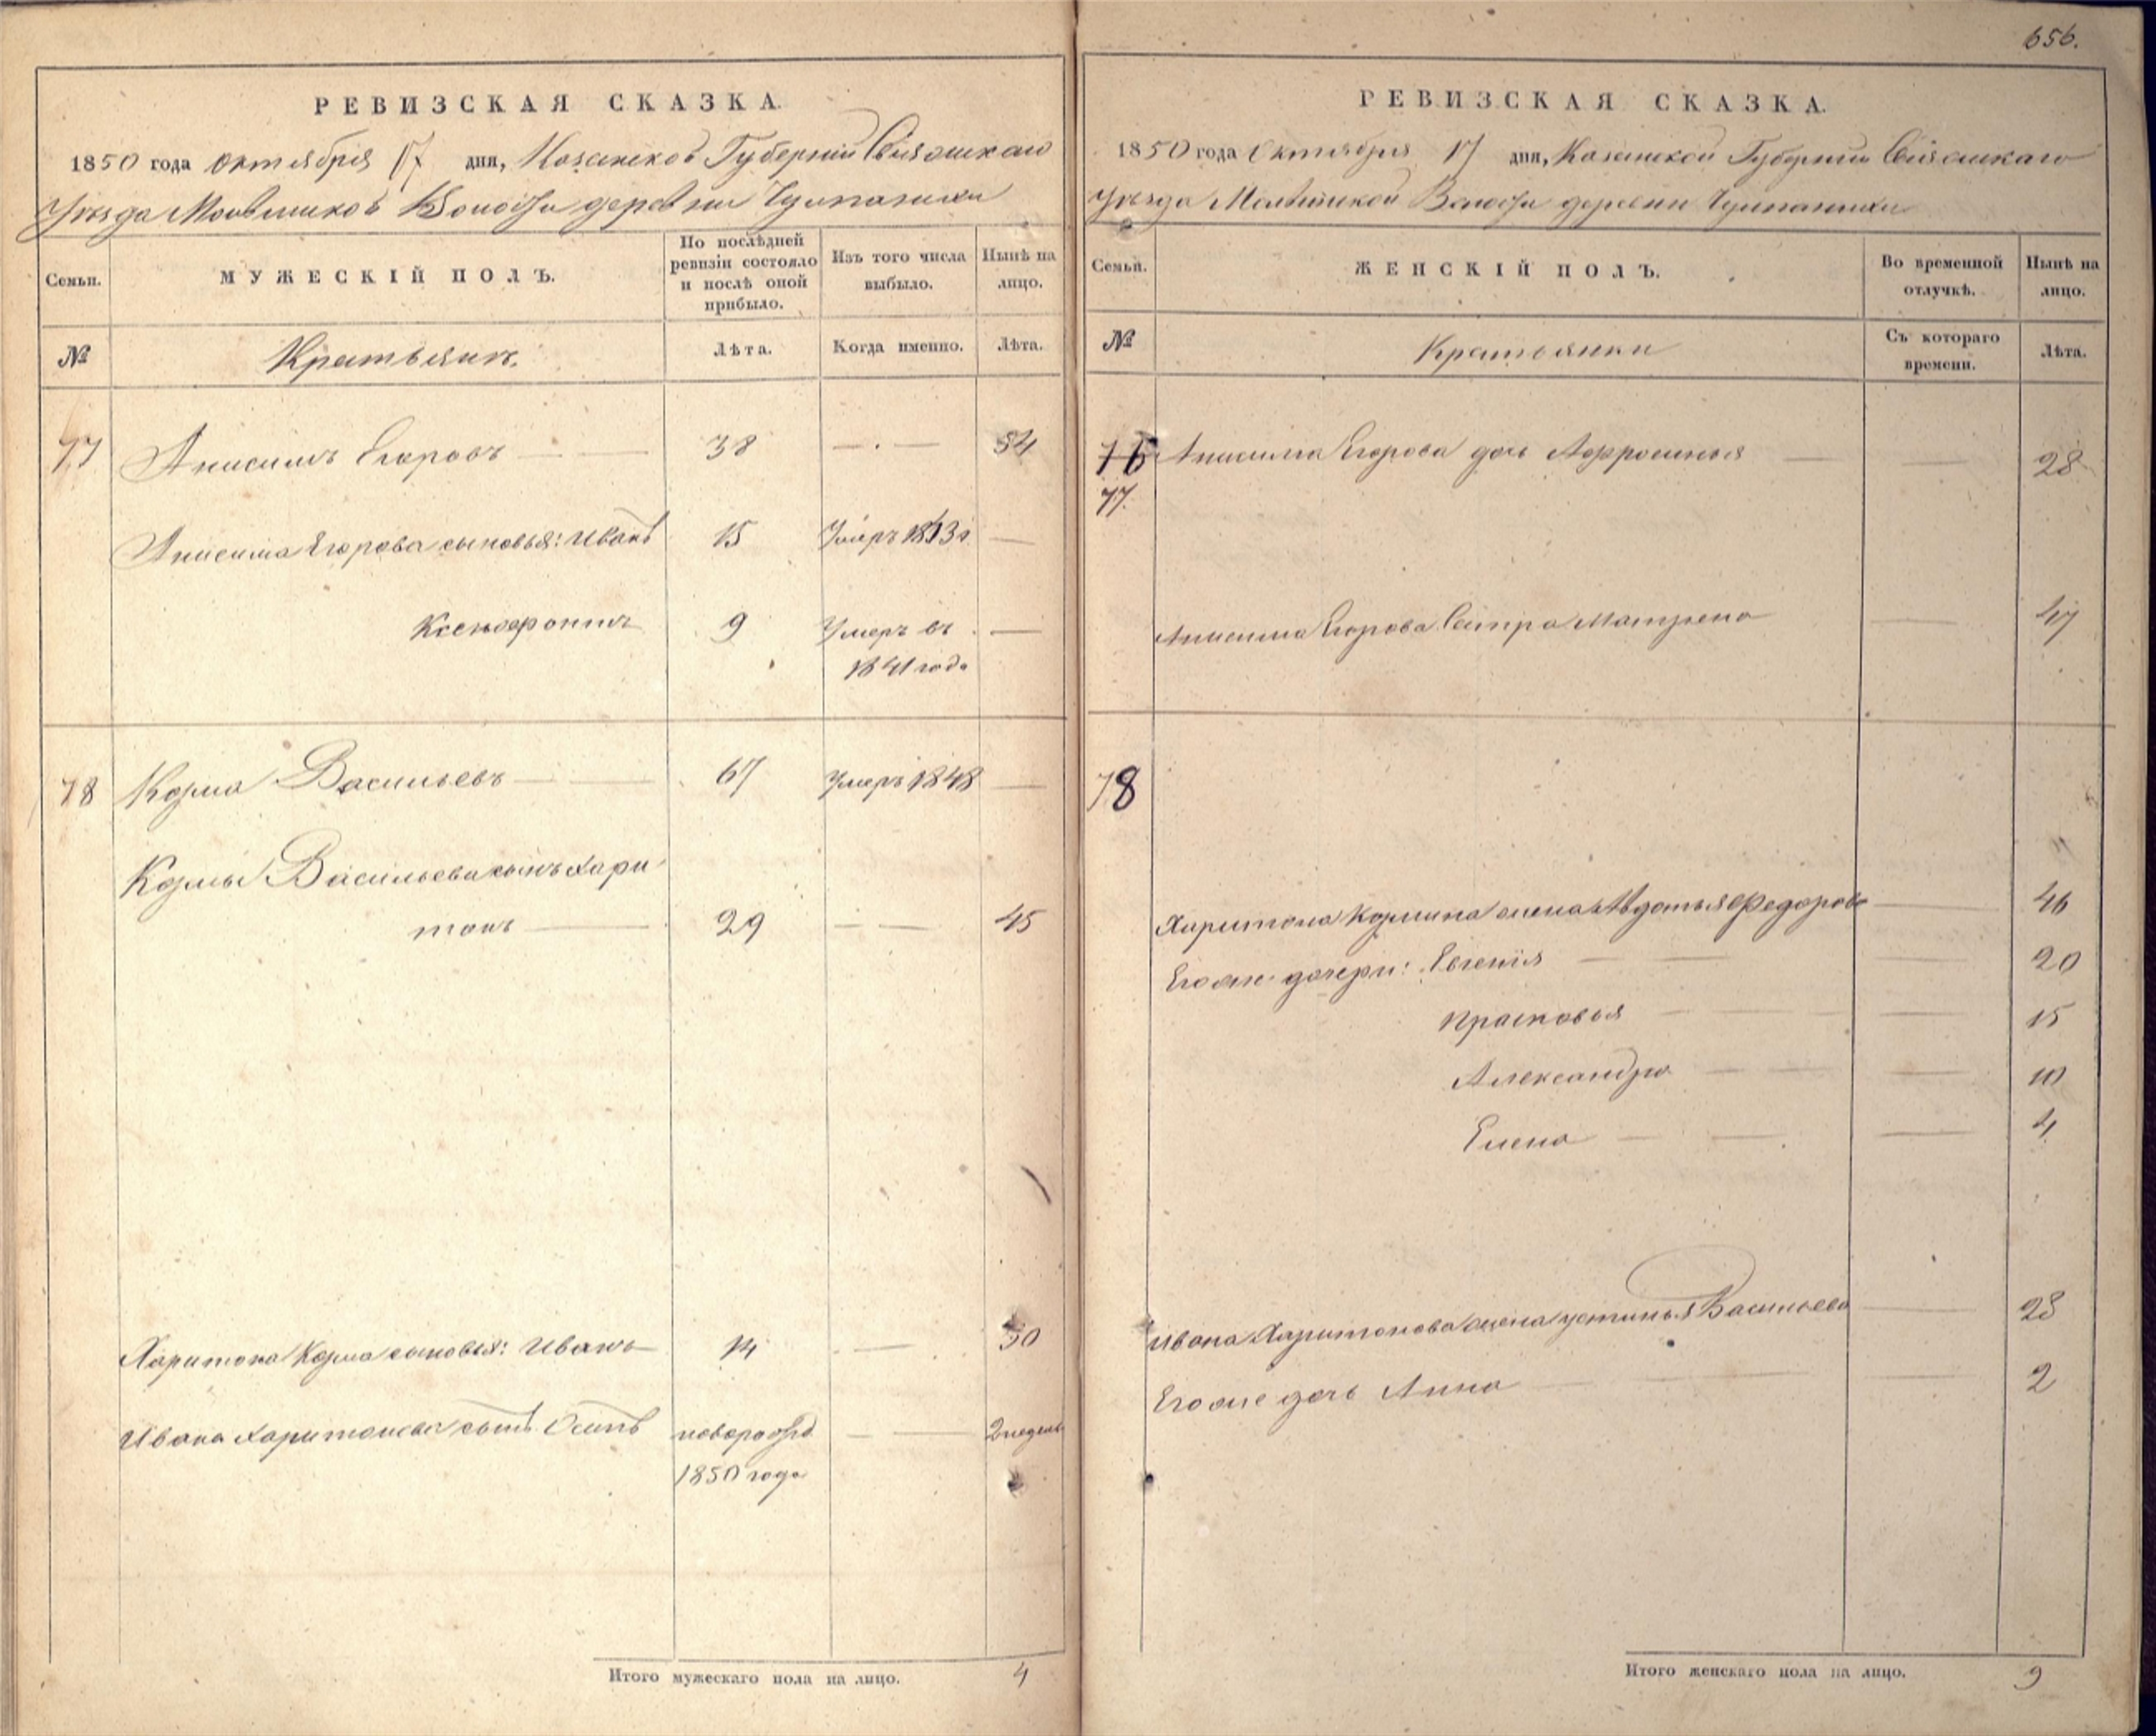 656.
РЕВИЗСКАЯ СКАЗКА.
1850 года октября 17 дня, Казанской Губернии Свіяжскаго
Уѣзда Волости деревни
Семьи.
МУЖЕСКІЙ ПОЛЪ.
По послѣдней ревизіи состояло и послѣ оной прибыло.
Изъ того числа выбыло.
Нынѣ на лицо.
№
Лѣта.
Когда именно.
Лѣта.
77 Анисимъ Егоровъ 38 54
Анисима Егорова сыновья: Иванъ 15 Умеръ
Ксенофонтъ 9 Умеръ въ
1841 года
78 Козма Васильевъ 67 Умеръ 1848
Козмы Васильева сынъ Хари
тонъ 29 45
Харитона Козма сыновья: Иванъ 14 30
Ивана Харитонова сынъ Осипъ новорожд 2 недель
1850 года
Итого мужескаго пола на лицо. 4
РЕВИЗСКАЯ СКАЗКА.
1850 года Октября 17 дня, Казанской Губернии Свіяжскаго
Уѣзда Волости деревни
Семьи.
ЖЕНСКІЙ ПОЛЪ.
Во временной отлучкѣ.
Нынѣ на лицо.
№
Крестьянки
Съ котораго времени.
Лѣта.
76 Анисима Егорова дочь 28
77.
Анисима Егорова Сестра Матрена 47
78
Харитона Козмина жена Авдотья Федорова 46
Его же дочери: Евгенія 20
Прасковья 15
Александра 10
Елена 4
Ивана Харитонова жена устинья Васильева 28
Его же дочь Анна 2
Итого женскаго пола на лицо. 9